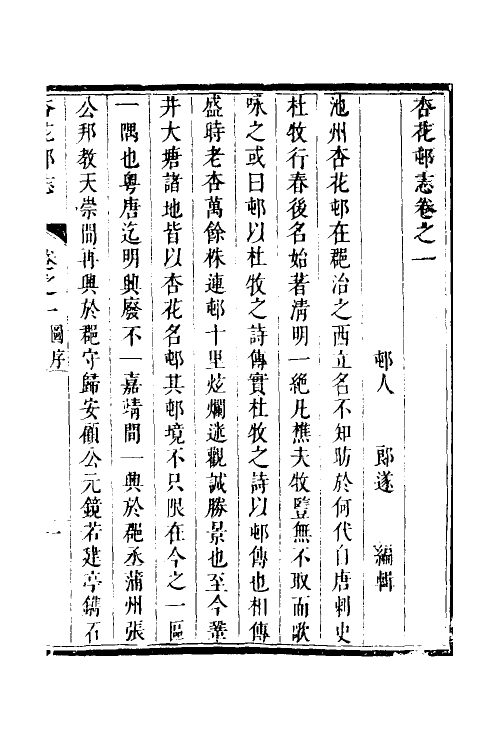 杏花邨志卷之一
邨人 郎遂 編輯
池州杏花邨在郡治之西立名不知昉於何代自唐刺史
杜牧行春後名始著清明一絶凡樵夫牧豎無不取而歌
咏之或曰邨以杜牧之詩傳實杜牧之詩以邨傳也相傳
盛時老杏萬餘株連邨十里炫爛迷觀誠勝景也至今華
井大塘諸地皆以杏花名邨其邨境不只限在今之一區
一隅也粵唐迄明興廢不一嘉靖間一興於郡丞蒲州張
公邦教天崇間再興於郡守歸安顧公元鏡若建亭鐫石
杏花邨志 卷之一圖序 一